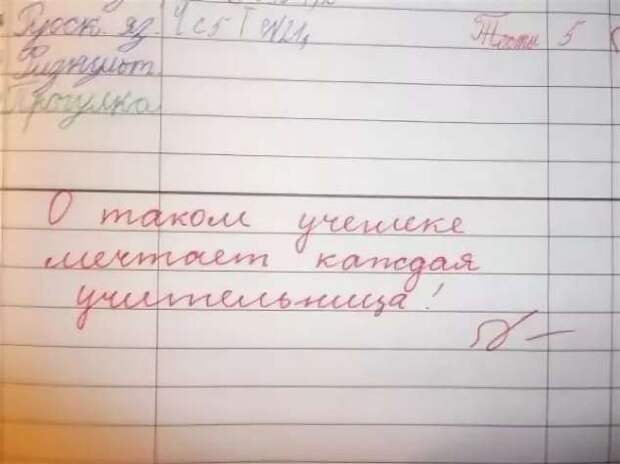 Русск. яз. Тесты 5
Физкульт.
Прогулка
О таком ученике
мечтает каждая
учительница!